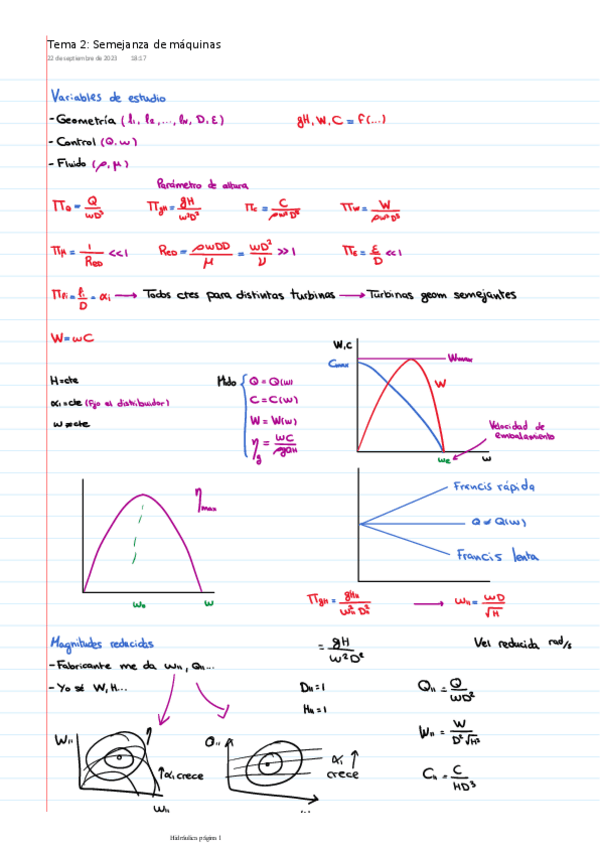 Tema 2: Semejanza de máquinas
22 de septiembre de 2023 18:17
Variables de estudio
- Geometría (l₁, l₂, ..., lₙ, D, ε) gH, W, C = f(...)
- Control (Q, ω)
- Fluido (ρ, μ)
Parámetro de altura
Π_Q = Q/ωD³ Π_gH = gH/ω²D² Π_C = C/ρω²D⁵ Π_W = W/ρω³D⁵
Π_μ = 1/Re_D <<1 Re_D = ρωDD/μ = ωD²/ν >>1 Π_ε = ε/D <<1
Π_li = li/D = αi → Todos ctes para distintas turbinas → Turbinas geom semejantes
W = ωC
H = cte
αi = cte (Fijo el distribuidor)
ω ≠ cte
Mido
Q = Q(ω)
C = C(ω)
W = W(ω)
η = ωC/ρQgH
W, C
Cmax
Wmax
W
Velocidad de embalamiento
ωe
ω
ηmax
ω₀
ω
Francis rápida
Q ≠ Q(ω)
Francis lenta
Π_gH = gH₁₁/ω₁₁²D₁₁² → ω₁₁ = ωD/√H
Magnitudes reducidas
= gH/ω²D² Vel reducida rad/s
- Fabricante me da ω₁₁, Q₁₁...
- Yo sé W, H...
D₁₁ = 1
H₁₁ = 1
Q₁₁ = Q/ωD²
W₁₁ = W/D²√H³
C₁₁ = C/HD³
W₁₁
η
↑αi crece
ω₁₁
Q₁₁
αi ↑
crece
Hidráulica página 1